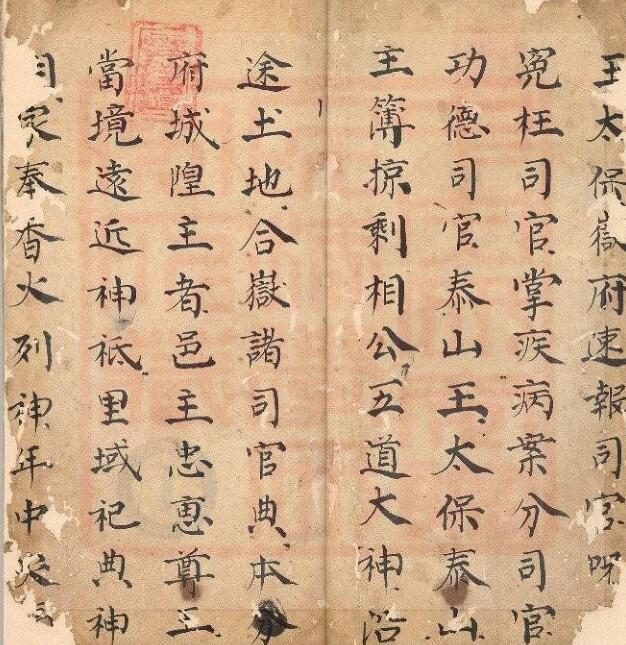 王太保嶽府速報司官
冤枉司官掌疾病案分司官
功德司官泰山王太保泰山
主簿掠剩相公五道大神沿
途土地合嶽諸司官典本
府城隍主者邑主忠惠尊王
當境遠近神祇里域祀典神
家奉香火列神年中